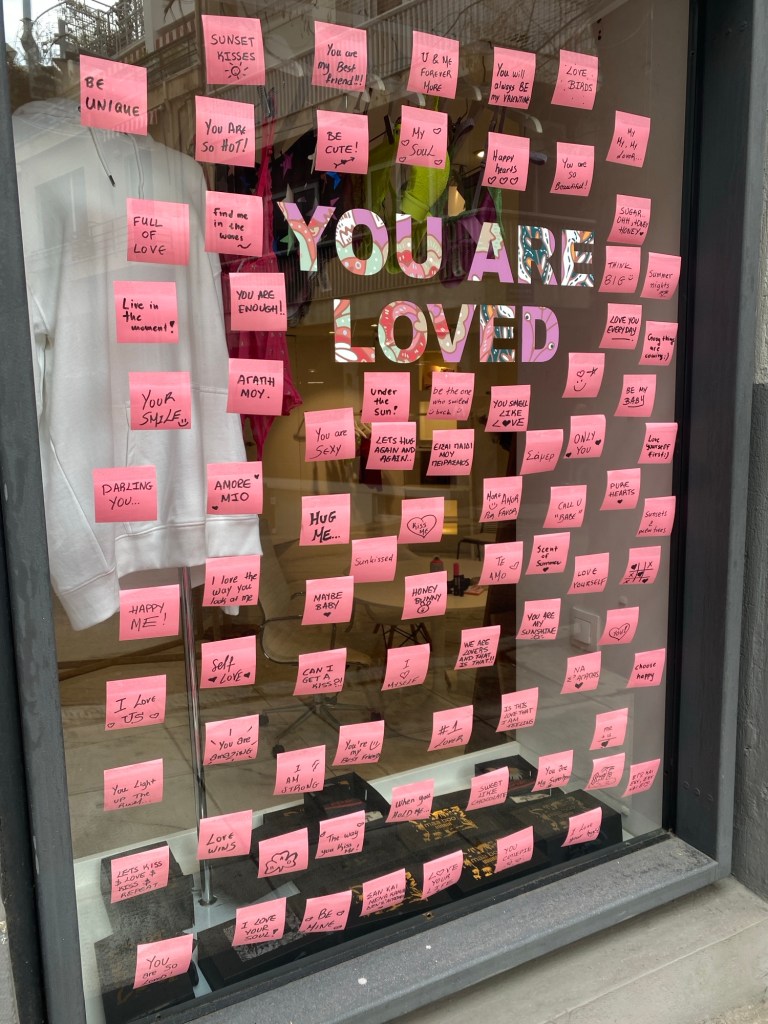 SUNSET
KISSES
You are
my Best
friend!!!
U & ME
FOREVER
MORE
You will
always BE
my VALENTINE
LOVE
BIRDS
BE
UNIQUE
YOU ARE
SO HOT!
BE
CUTE!
MY
SOUL
Happy
hearts
You are
so
Beautiful!
MY,
MY, MY
LOVER...
FULL
OF
LOVE
find me
in the
waves
SUGAR
OHH, HONEY
HONEY
YOU ARE
LOVED
THINK
BIG
Summer
nights
Live in
the
moment!
YOU ARE
ENOUGH!
LOVE YOU
EVERYDAY
Good things
are
coming :)
YOUR
SMILE
ΑΓΑΠΗ
ΜΟΥ.
under
the
sun!
be the one
who smiled
back
YOU SMELL
LIKE
LOVE
BE MY
BABY
You are
SEXY
LETS HUG
AGAIN AND
AGAIN..
ΕΙΣΑΙ ΠΑΙΔΙ
ΜΟΥ
ΠΕΙΡΑΣΜΟΣ
Σάμερ
ONLY
YOU
Love
yourself
first!
DARLING
YOU...
AMORE
MIO
HUG
ME...
Kiss
me
POR FAVOR
CALL U
"BABE"
PURE
HEARTS
Sunsets
I love the
way you
look at me
Sunkissed
TE
AMO
Scent of
Summer
LOVE
YOURSELF
HAPPY
ME!
MAYBE
BABY
HONEY
BUNNY
YOU ARE
MY
SUNSHINE
Self
LOVE
CAN I
GET A
KISS?!
I
MYSELF
WE ARE
LOVERS
AND THAT
IS THAT!!
choose
happy
I LOVE
US
YOU ARE
AMAZING
You're
my
Best friend
#1
LOVER
IS THIS
LOVE THAT
I AM
FEELING
me
+ u
You Light
up The
I
AM
STRONG
When you
HOLD ME...
SWEET
LIKE
CHOCOLATE
You Are
LOVE
WINS
The way
you kiss
me
I Love
LETS KISS
& LOVE &
KISS &
REPEAT!
LOVE
YOU
COMPLETE
I LOVE
YOUR
SOUL!
BE
MINE
ΣΑΝ ΚΑΙ
YOU
ARE SO